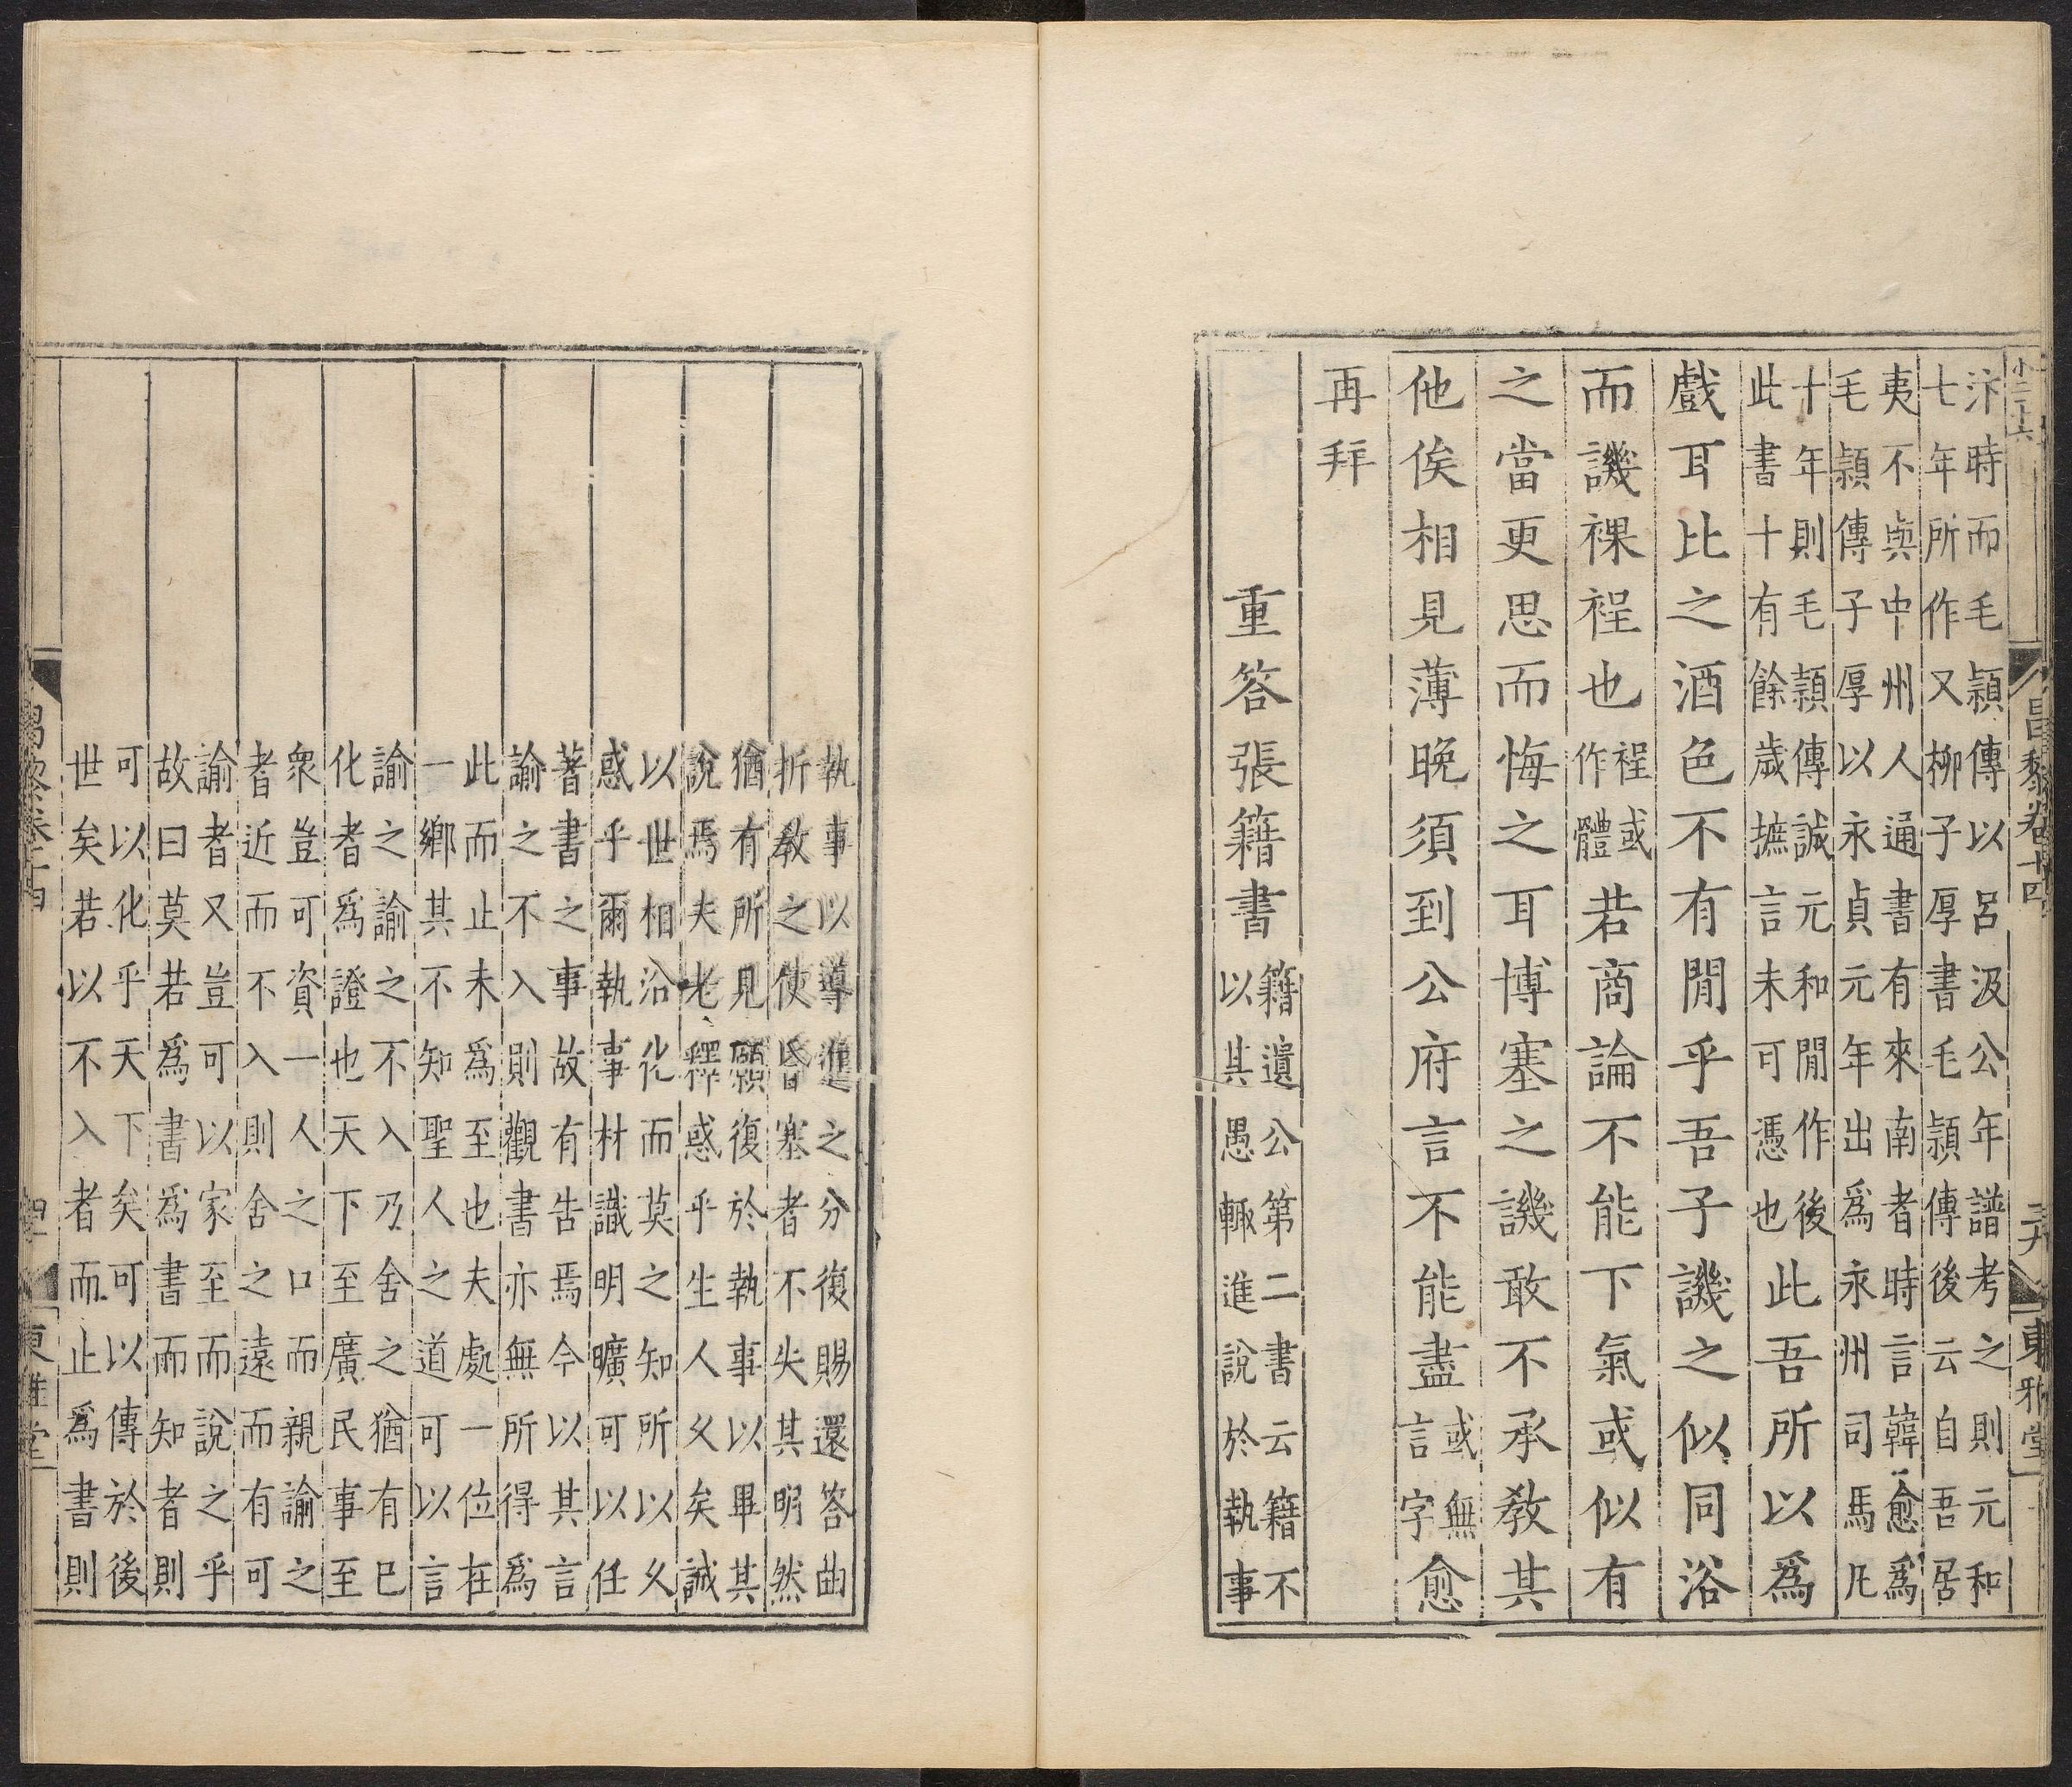 昌黎卷十四
東雅堂
汴時而毛頴傳以呂汲公年譜考之則元和
七年所作又柳子厚書毛頴傳後云自吾居
夷不與中州人通書有來南者時言韓愈爲
毛頴傳子厚以永貞元年出爲永州司馬凡
十年則毛頴傳誠元和閒作後
此書十有餘歲摭言未可憑也此吾所以爲
戲耳比之酒色不有閒乎吾子譏之似同浴
而譏裸裎也裎或作體若商論不能下氣或似有
之當更思而悔之耳博塞之譏敢不承敎其
他俟相見薄晚須到公府言不能盡或無言字愈
再拜
重答張籍書籍遺公第二書云籍不
以其愚輒進說於執事
執事以導進之分復賜還答曲
折敎之使昏塞者不失其明然
猶有所見願復於執事以畢其
說焉夫老釋惑乎生人久矣誠
以世相沿化而莫之知所以久
惑乎爾執事材識明曠可以任
著書之事故有告焉今以其言
諭之不入則觀書亦無所得爲
此而止未爲至也夫處一位在
一鄉其不知聖人之道可以言
諭之諭之不入乃舍之猶有已
化者爲證也天下至廣民事至
衆豈可資一人之口而親諭之
者近而不入則舍之遠而有可
諭者又豈可以家至而說之乎
故曰莫若爲書爲書而知者則
可以化乎天下矣可以傳於後
世矣若以不入者而止爲書則
昌黎卷十四
東雅堂